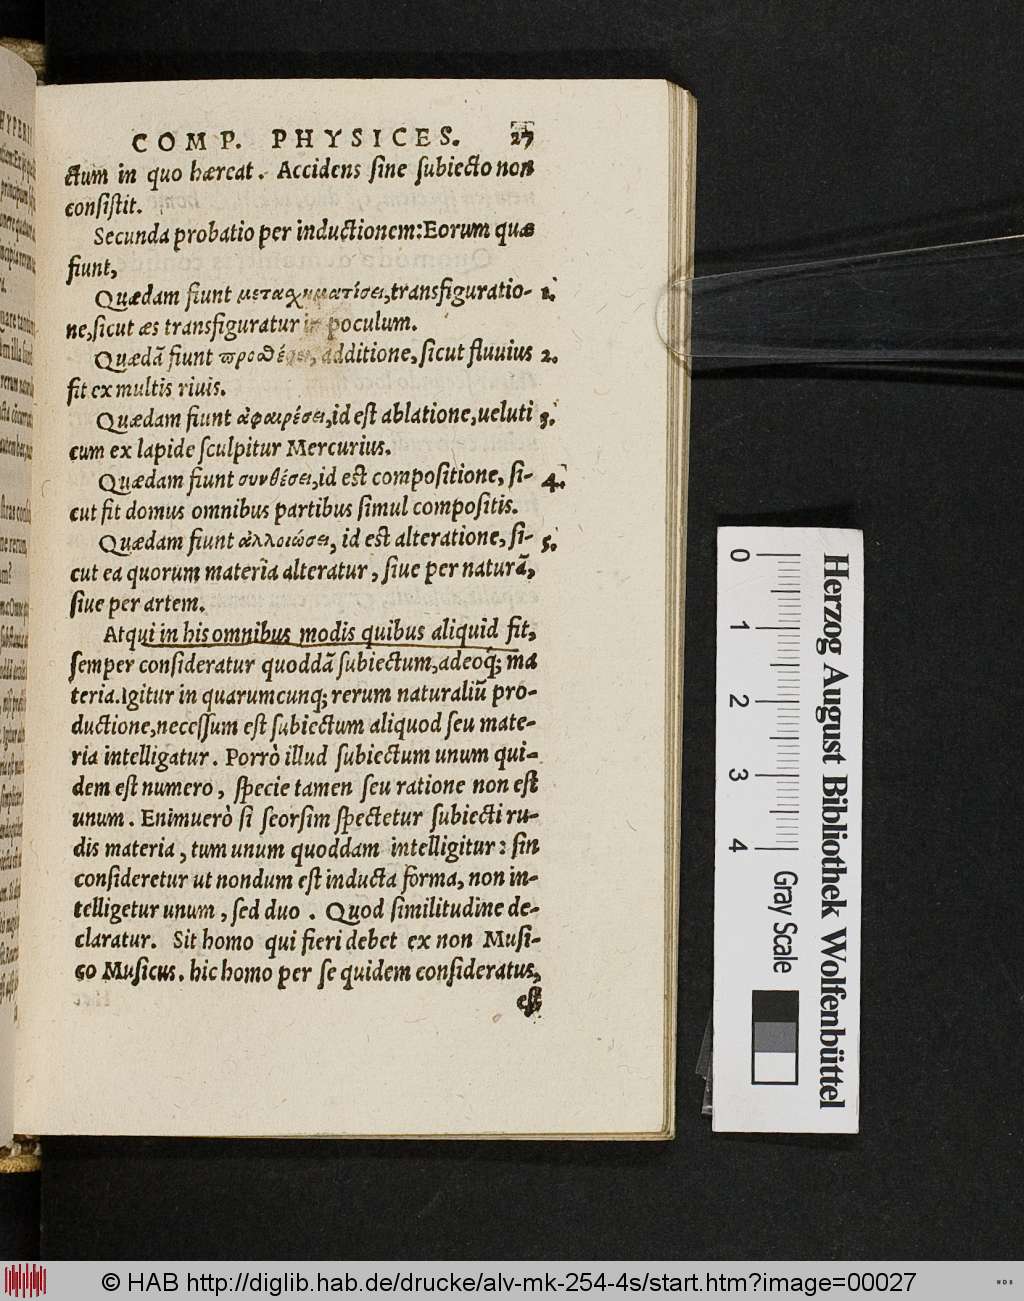 COMP. PHYSICES. 27
ctum in quo hæreat. Accidens sine subiecto non
consistit.
Secunda probatio per inductionem: Eorum quæ
fiunt,
Quædam fiunt μετασχηματίσει, transfiguratio- 1.
ne, sicut æs transfiguratur in poculum.
Quædã fiunt προσθέσει, additione, sicut fluuius 2.
fit ex multis riuis.
Quædam fiunt ἀφαιρέσει, id est ablatione, ueluti 3.
cum ex lapide sculpitur Mercurius.
Quædam fiunt συνθέσει, id est compositione, si- 4.
cut fit domus omnibus partibus simul compositis.
Quædam fiunt ἀλλοιώσει, id est alteratione, si- 5.
cut ea quorum materia alteratur, siue per naturã,
siue per artem.
Atqui in his omnibus modis quibus aliquid fit,
semper consideratur quoddã subiectum, adeoq; ma
teria. Igitur in quarumcunq; rerum naturaliũ pro-
ductione, necessum est subiectum aliquod seu mate-
ria intelligatur. Porrò illud subiectum unum qui-
dem est numero, specie tamen seu ratione non est
unum. Enimuerò si seorsim spectetur subiecti ru-
dis materia, tum unum quoddam intelligitur: sin
consideretur ut nondum est inducta forma, non in-
telligetur unum, sed duo. Quod similitudine de-
claratur. Sit homo qui fieri debet ex non Musi-
co Musicus. hic homo per se quidem consideratus,
est
0 1 2 3 4
Gray Scale
Herzog August Bibliothek Wolfenbüttel
© HAB http://diglib.hab.de/drucke/alv-mk-254-4s/start.htm?image=00027